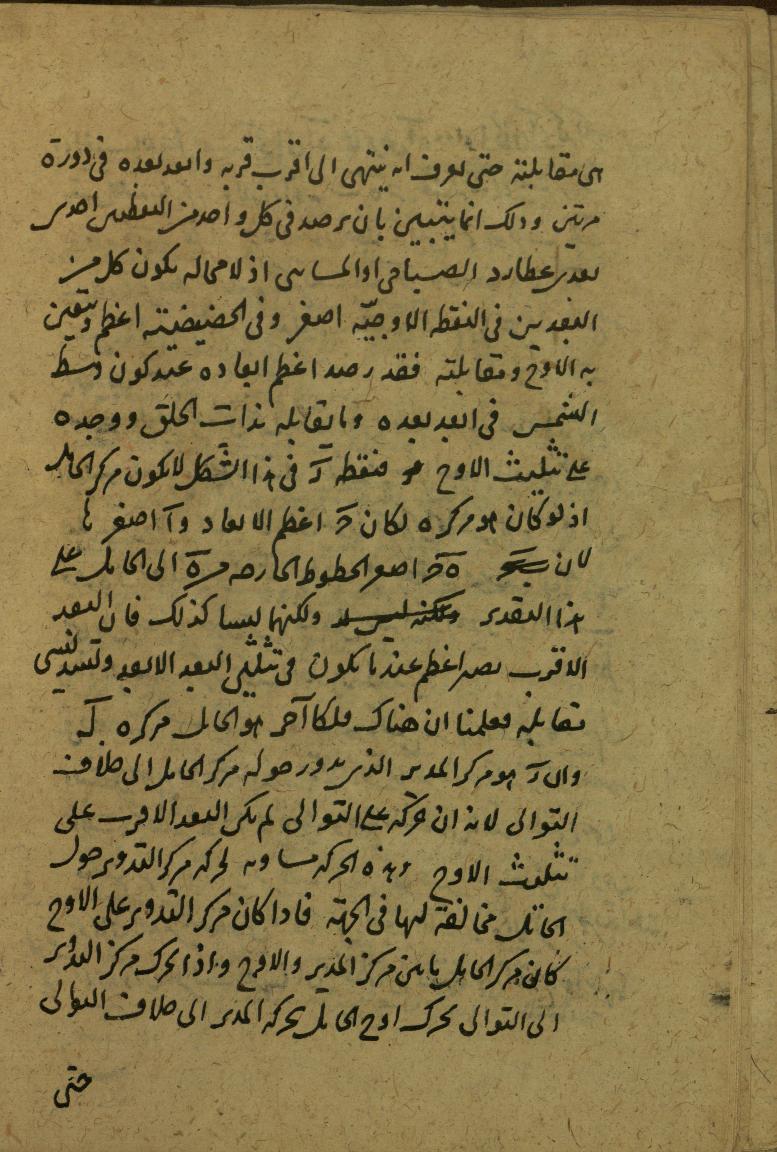 هى مقابلته حتى يعرف انه ينتهى الى اقرب قربه وابعد بعده فى دورة
مرتين وذلك انما يتبين بان يرصد فى كل واحد من النقطتين احدى
بعدى عطارد الصباحى او المسائى اذ لا محاله يكون كل من
البعدين فى النقطه الاوجيّه اصغر وفى الحضيضيته اعظم ويتعين
به الاوج ومقابلته فقد رصد اعظم ابعاده عند كون وسط
الشمس فى ابعد بعده وما يقابله بذات الحلق ووجده
على تثليث الاوج فنقطه دَ فى هذا الشكل لا يكون مركز الحامل
اذ لو كان هو مركزه لكان اعظم الابعاد واَ اصغرها
لان اصغر الخطوط الخارجه من هَ الى الحامل على
هذا التقدير ولكنها ليسا كذلك فان البعد
الاقرب يصير اعظم عندما يكون فى تثليثى البعد الابعد وتسديسى
مقابله فعلمنا ان هناك فلكا آخر هو الحامل مركزه
وان دَ هو مركز المدير الذى يدور حوله مركز الحامل الى خلاف
التوالى لانه ان حركه على التوالى لم يكن البعد الاقرب على
تثليث الاوج وهذه الحركه مساويه لحركه مركز التدوير حول
الحامل مخالفة لها فى الجهته فاذا كان مركز التدوير على الاوج
كان مركز الحامل ما بين مركز المدير والاوج واذا تحرك مركز التدوير
الى التوالى تحرك اوج الحامل بحركه المدير الى خلاف التوالى
حتى